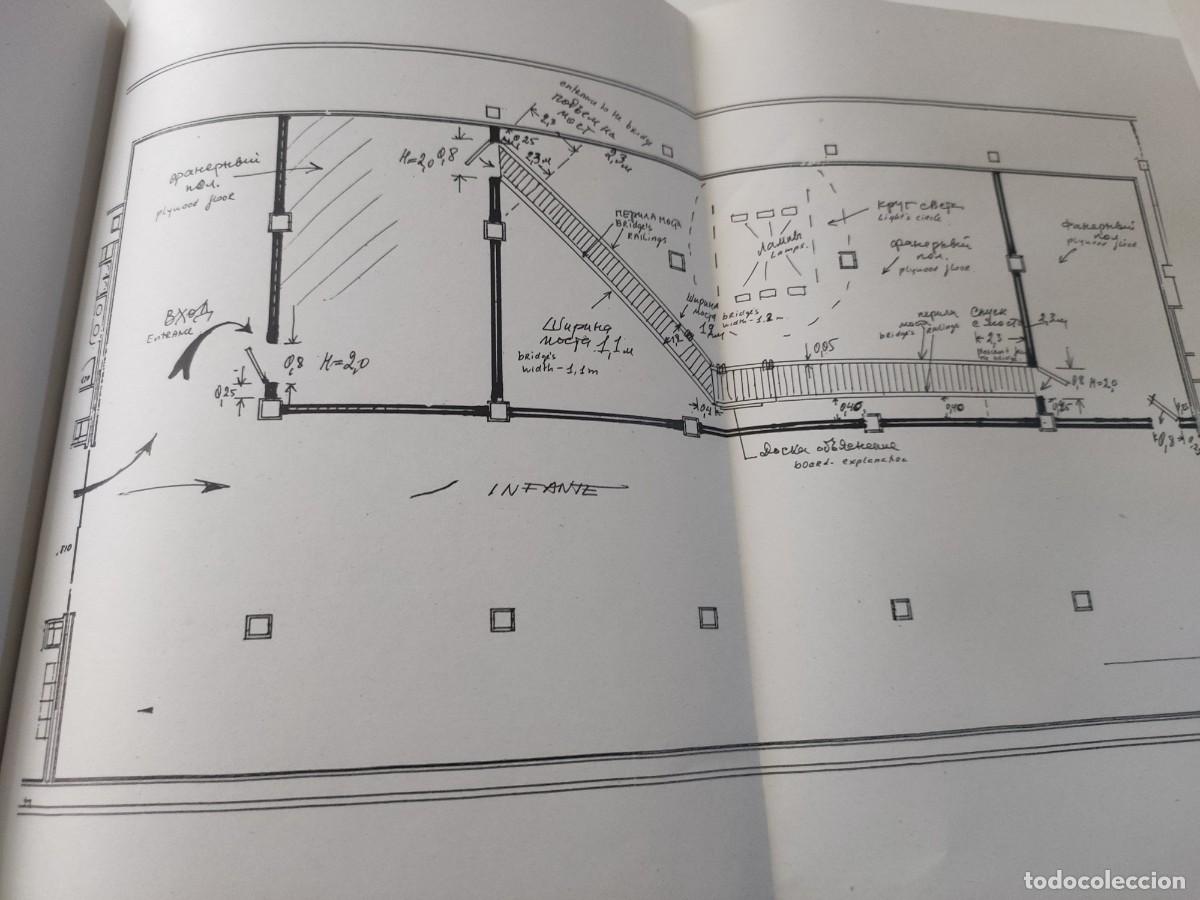 entrance to the bridge
подъем на
мост
2,3
0,25
2,3 м
2,3 м
0,8
H=2,0
фанерный
пол.
plywood floor
перила моста
bridge's
railings
круг света
light's circle
лампы
lamps.
фанерный
пол.
plywood floor
фанерный
пол.
plywood floor
ВХОД
Entrance
Ширина
моста 1,1 м
bridge's
width - 1,1 m
ширина
моста
1,2 м
bridge's
width - 1,2 m
1,2
перила
моста
bridge's railings
спуск
с моста
2,3
2,3 м
0,05
0,8 H=2,0
0,25
0,8 H=2,0
0,4
0,40
0,40
0,25
0,8
Доска объяснение
board - explanation
INFANTE
.810
todocoleccion